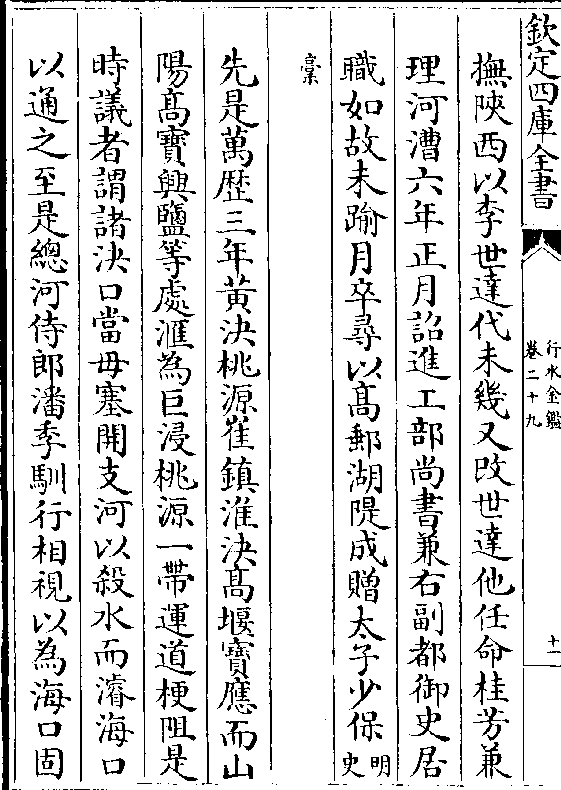 欽定四庫全書
行水金鑑
卷二十九
十一
撫陝西以李世達代未幾又改世達他任命桂芳兼
理河漕六年正月詔進工部尚書兼右副都御史居
職如故未踰月卒尋以髙郵湖隄成贈太子少保明史
稾
先是萬歴三年黄決桃源崔鎮淮決髙堰寶應而山
陽髙寶興鹽等處滙為巨浸桃源一帶運道梗阻是
時議者謂諸決口當毋塞開支河以殺水而濬海口
以通之至是總河侍郎潘季馴行相視以為海口固